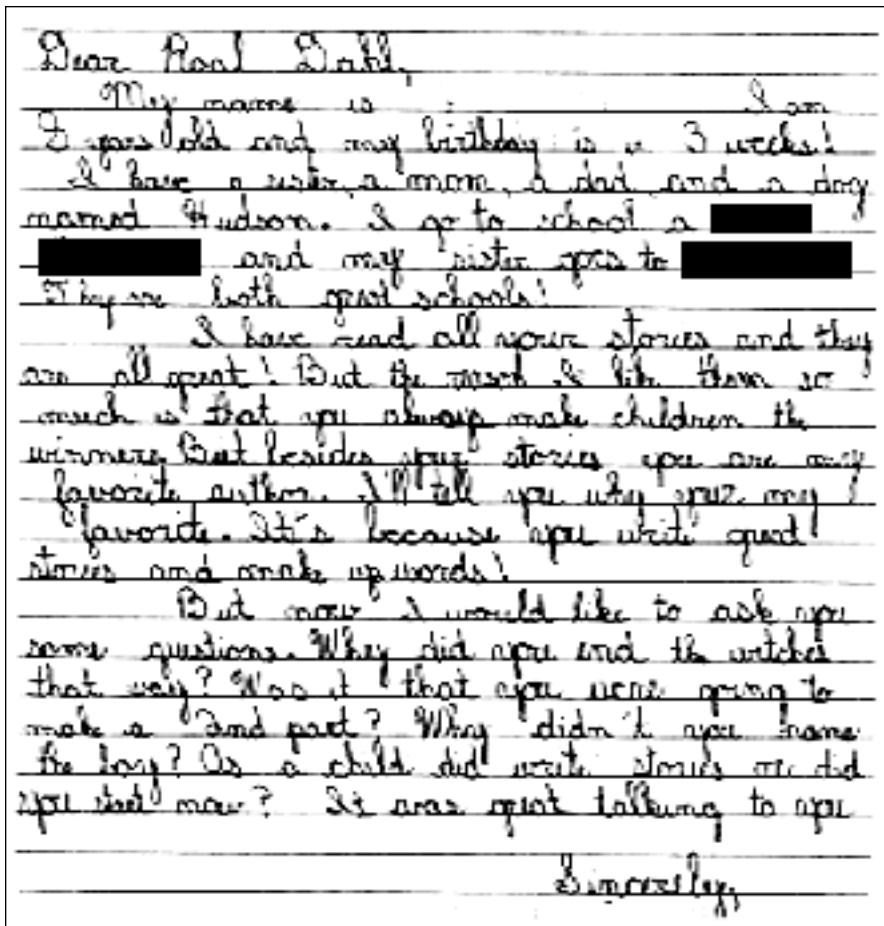 Dear Roal Dahl,
My name is : I am
years old and my birthday is in 3 weeks!
I have a sister, a mom, a dad and a dog
named Hudson. I go to school a
and my sister goes to
They are both great schools!
I have read all your stories and they
are all great! But the reason I like them so
much is that you always make children the
winners. But besides your stories you are my
favorite author. I'll tell you why your my
favorite. It's because you write great
stories and make up words!
But now I would like to ask you
some questions. Whey did you end the witches
that way? Was it that you were going to
make a 2nd part? Why didn't you name
the boy? As a child did write stories or did
you start now? It was great talking to you
Sincerley,